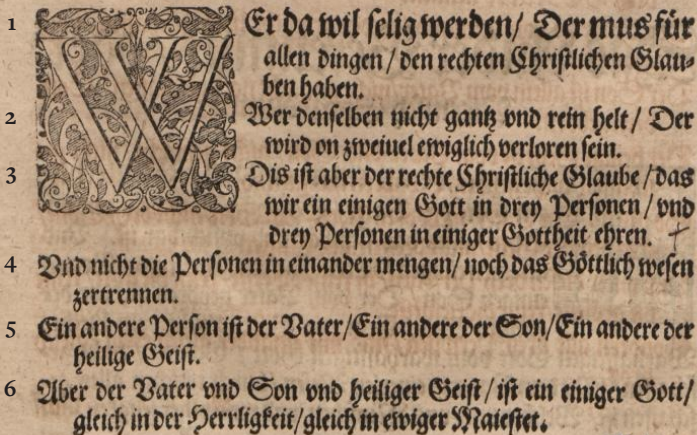 1 WEr da wil ſelig werden/ Der mus für
allen dingen / den rechten Chriſtlichen Glau⸗
ben haben.
2 Wer denſelben nicht gantz vnd rein helt / Der
wird on zweiuel ewiglich verloren ſein.
3 Dis iſt aber der rechte Chriſtliche Glaube / das
wir ein einigen Gott in drey Perſonen / vnd
drey Perſonen in einiger Gottheit ehren. †
4 Vnd nicht die Perſonen in einander mengen/ noch das Göttlich weſen
zertrennen.
5 Ein andere Perſon iſt der Vater/Ein andere der Son/Ein andere der
heilige Geiſt.
6 Aber der Vater vnd Son vnd heiliger Geiſt / iſt ein einiger Gott/
gleich in der Herrligkeit/gleich in ewiger Maieſtet.